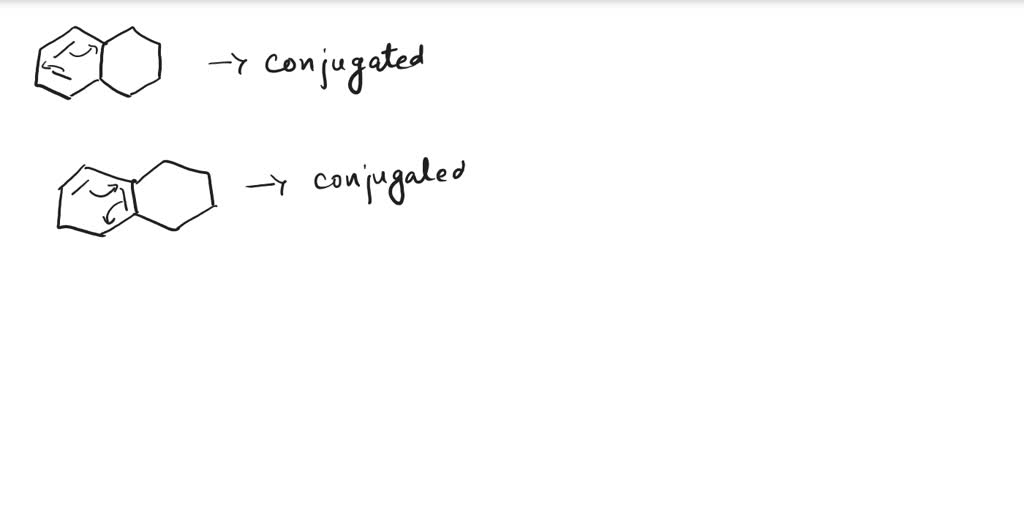 → conjugated
→ conjugated